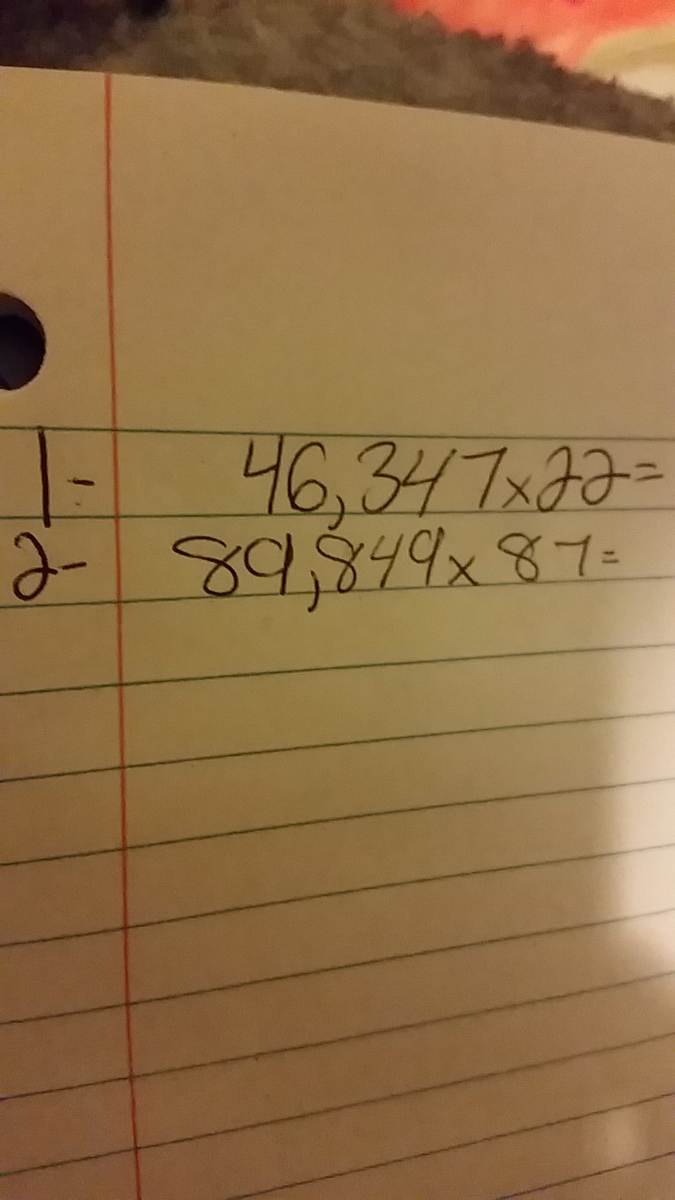 1- 46,347x22=
2- 89,849x87=